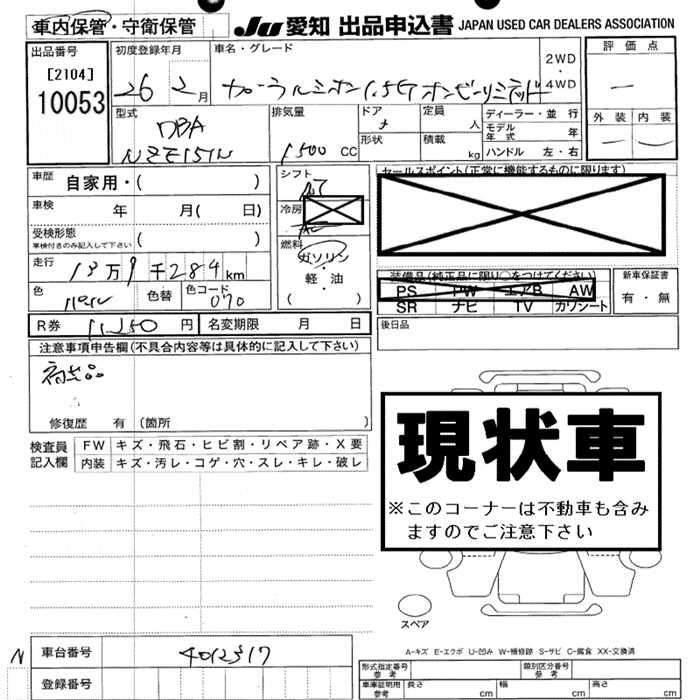 車内保管・守衛保管
JU 愛知 出品申込書 JAPAN USED CAR DEALERS ASSOCIATION
出品番号
[2104]
10053
初度登録年月
26 年 2 月
車名・グレード
2WD
・
4WD
評価点
外装 内装
型式
DBA
NZE151N
排気量
1500 CC
ドア
形状
定員 人
積載 kg
ディーラー・並行
モデル年式 年
ハンドル 左・右
車歴 自家用・( )
車検 年 月( 日)
受検形態 ( )
車検付きのみ記入して下さい
走行 13万9千284km
色 色替 色コード 070
シフト AT
冷房 AC
燃料
ガソリン
・
軽・油
( )
セールスポイント(正常に機能するものに限ります)
装備品(純正品に限り○をつけてください)
PS PW エアB AW
SR ナビ TV カワシート
新車保証書
有・無
R券 11,250 円 名変期限 月 日
後日品
注意事項申告欄(不具合内容等は具体的に記入して下さい)
修復歴 有(箇所 )
検査員記入欄
FW キズ・飛石・ヒビ割・リペア跡・X要
内装 キズ・汚レ・コゲ・穴・スレ・キレ・破レ
現状車
※このコーナーは不動車も含み
ますのでご注意下さい
スペア
A-キズ E-エクボ U-凹み W-補修跡 S-サビ C-腐食 XX-交換済
N 車台番号 4012317
登録番号
形式指定番号 参考 類別区分番号 参考
車庫証明用 参考 長さ cm 幅 cm 高さ cm